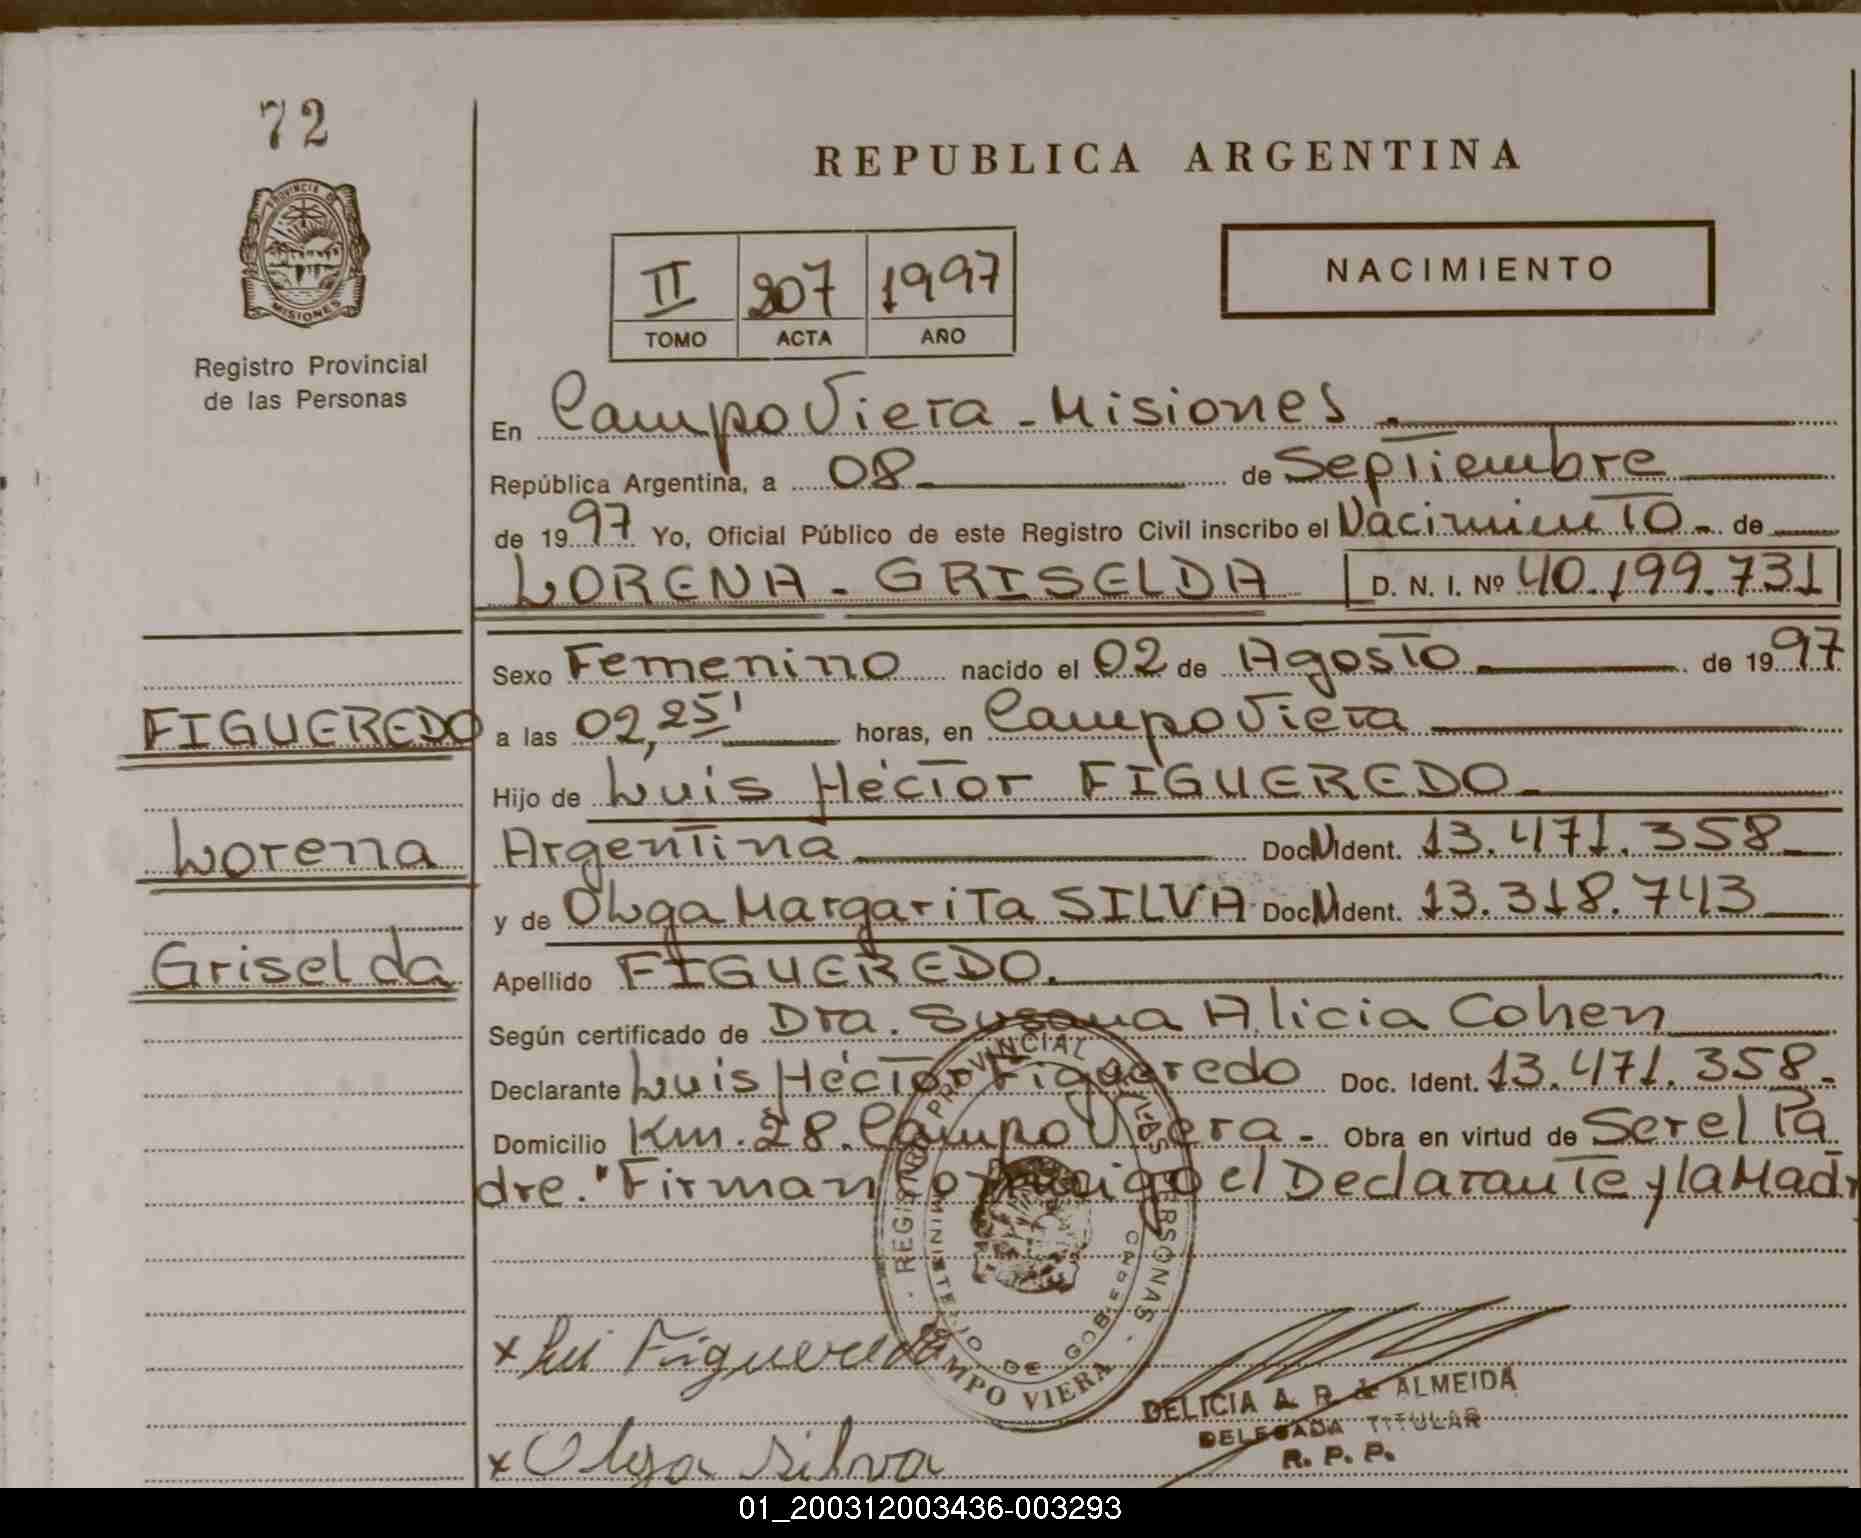 72
PROVINCIA DE
MISIONES
Registro Provincial
de las Personas
FIGUEREDO
Lorena
Griselda
REPUBLICA ARGENTINA
II 207 1997
TOMO ACTA AÑO
NACIMIENTO
En Campo Viera - Misiones.
República Argentina, a 08 de Septiembre
de 1997 Yo, Oficial Público de este Registro Civil inscribo el Nacimiento - de
LORENA - GRISELDA D. N. I. Nº 40.199.731
Sexo Femenino nacido el 02 de Agosto de 1997
a las 02,25' horas, en Campo Viera
Hijo de Luis Héctor FIGUEREDO
Argentina Doc. N Ident. 13.471.358
y de Olga Margarita SILVA Doc. N Ident. 13.318.743
Apellido FIGUEREDO.
Según certificado de Dra. Susana Alicia Cohen
Declarante Luis Héctor Figueredo Doc. Ident. 13.471.358.
Domicilio Km. 28. Campo Viera - Obra en virtud de Ser el Pa
dre." Firman conmigo el Declarante y la Madr
REGISTRO PROVINCIAL DE LAS PERSONAS
MINISTERIO DE GOBIERNO
CAMPO VIERA
x Lui Figueredo
DELICIA A. R. de ALMEIDA
DELEGADA TITULAR
R. P. P.
x Olga Silva
01_200312003436-003293